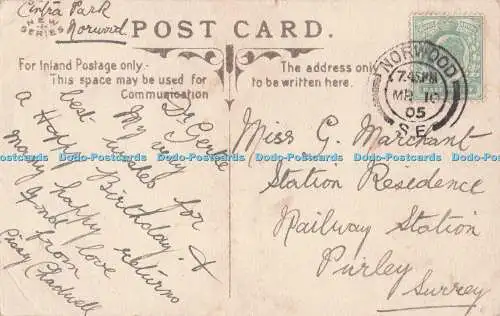 Cintra Park
Norwood
NEW
SERIES
POST CARD.
For Inland Postage only
This space may be used for
Communication
The address only
to be written here.
NORWOOD
7.45PM
MR 10
05
S.E.
Dr Gertie
My very
best wishes for
a Happy Birthday &
many happy returns
Love
from
Cissy Chadwell
Miss G. Marchant
Station Residence
Railway Station
Purley
Surrey
Postcards-Data